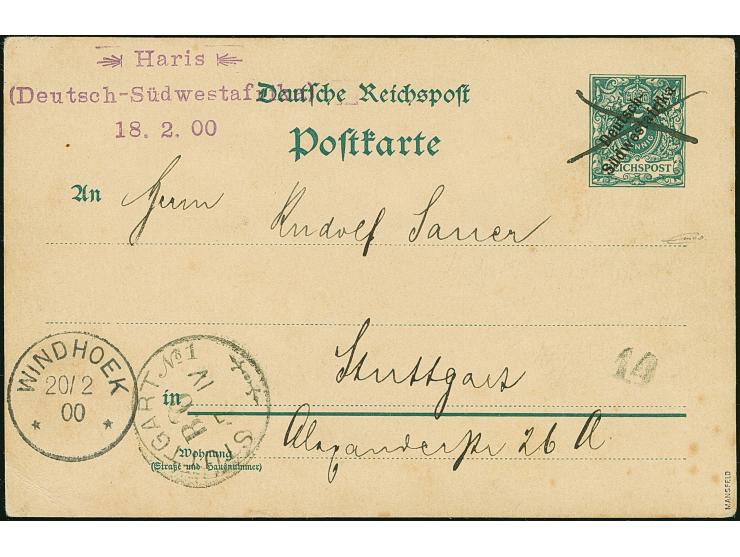 Haris
(Deutsch-Südwestafrika)
18. 2. 00
Deutsche Reichspost
Postkarte
Deutsch-
Südwestafrika
REICHSPOST
An Herrn Rudolf Sauer
WINDHOEK
20/2
00
STUTTGART No 1
IV
14
in Stuttgart
Alexanderstr 26 A.
Wohnung
(Straße und Hausnummer)
MANSFELD